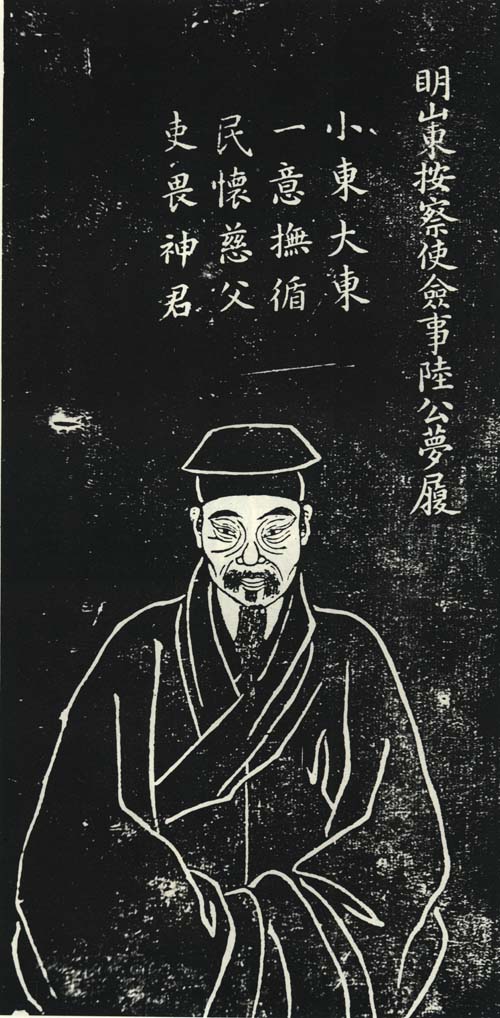 明山東按察使僉事陸公夢履
小東大東
一意撫循
民懷慈父
吏畏神君